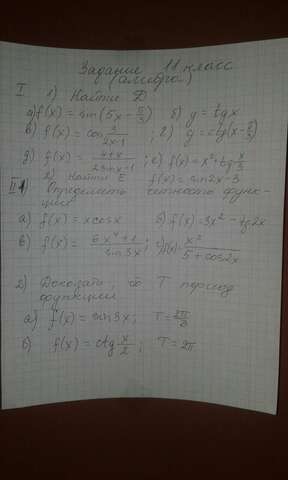 Задание 11 класс
(алгебра)
I 1) Найти D
а) f(x) = sin(5x - π/3) б) y = tgx
в) f(x) = cos 3/(2x-1), г) y = ctg(x - π/3)
д) f(x) = (4+x)/(2sinx-1); е) f(x) = x² + tg x/3
2) Найти E f(x) = sin2x - 3
II 1) Определить четность функ-
ции
а) f(x) = xcosx б) f(x) = 3x² - tg2x
в) f(x) = (6x⁴+1)/sin3x; г) f(x) = x²/(5+cos2x)
2) Доказать, что T период
функции
а) f(x) = sin3x; T = 2π/3
б) f(x) = ctg x/2; T = 2π